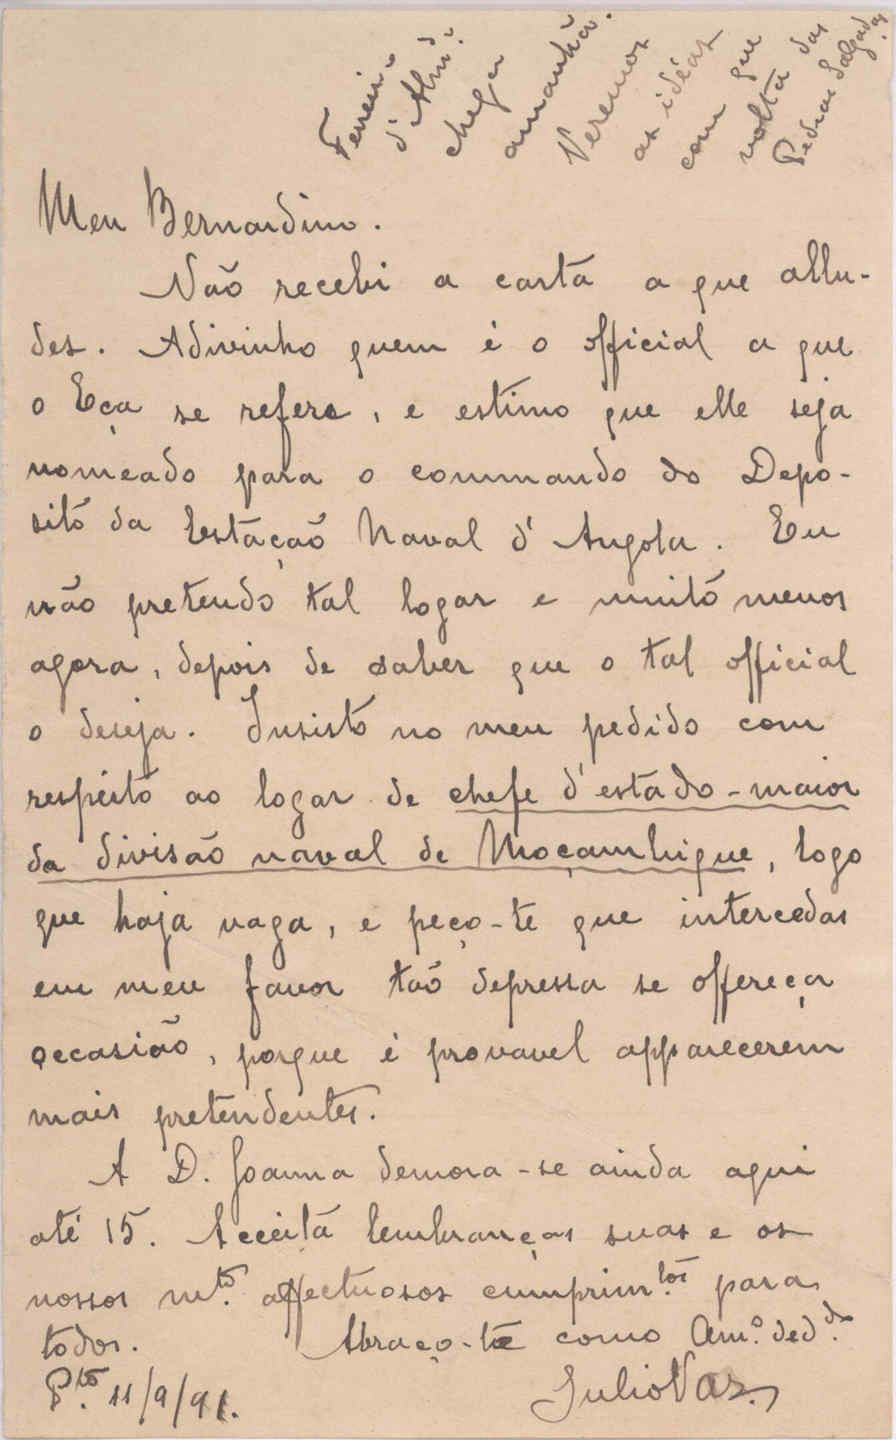 Ferreirª
d'Almdª
chega
amanhã.
Veremos
as idéas
com que
volta das
Pedras Salgadas.
Meu Bernardino.
Não recebi a carta a que allu-
des. Adivinho quem é o official a que
o Eça se refere, e estimo que elle seja
nomeado para o commando do Depo-
sito da Estação Naval d'Angola. Eu
não pretendo tal logar e muito menos
agora, depois de saber que o tal official
o deseja. Insisto no meu pedido com
respeito ao logar de chefe d'estado-maior
da divisão naval de Moçambique, logo
que haja vaga, e peço-te que intercedas
em meu favor tão depressa se offereça
occasião, porque é provavel apparecerem
mais pretendentes.
A D. Joanna demora-se ainda aqui
até 15. Acceita lembranças suas e os
nossos m.tos affectuosos cumprim.tos para
todos. Abraço-te como Am.º ded.do
P.to 11/9/91. Julio Vaz.